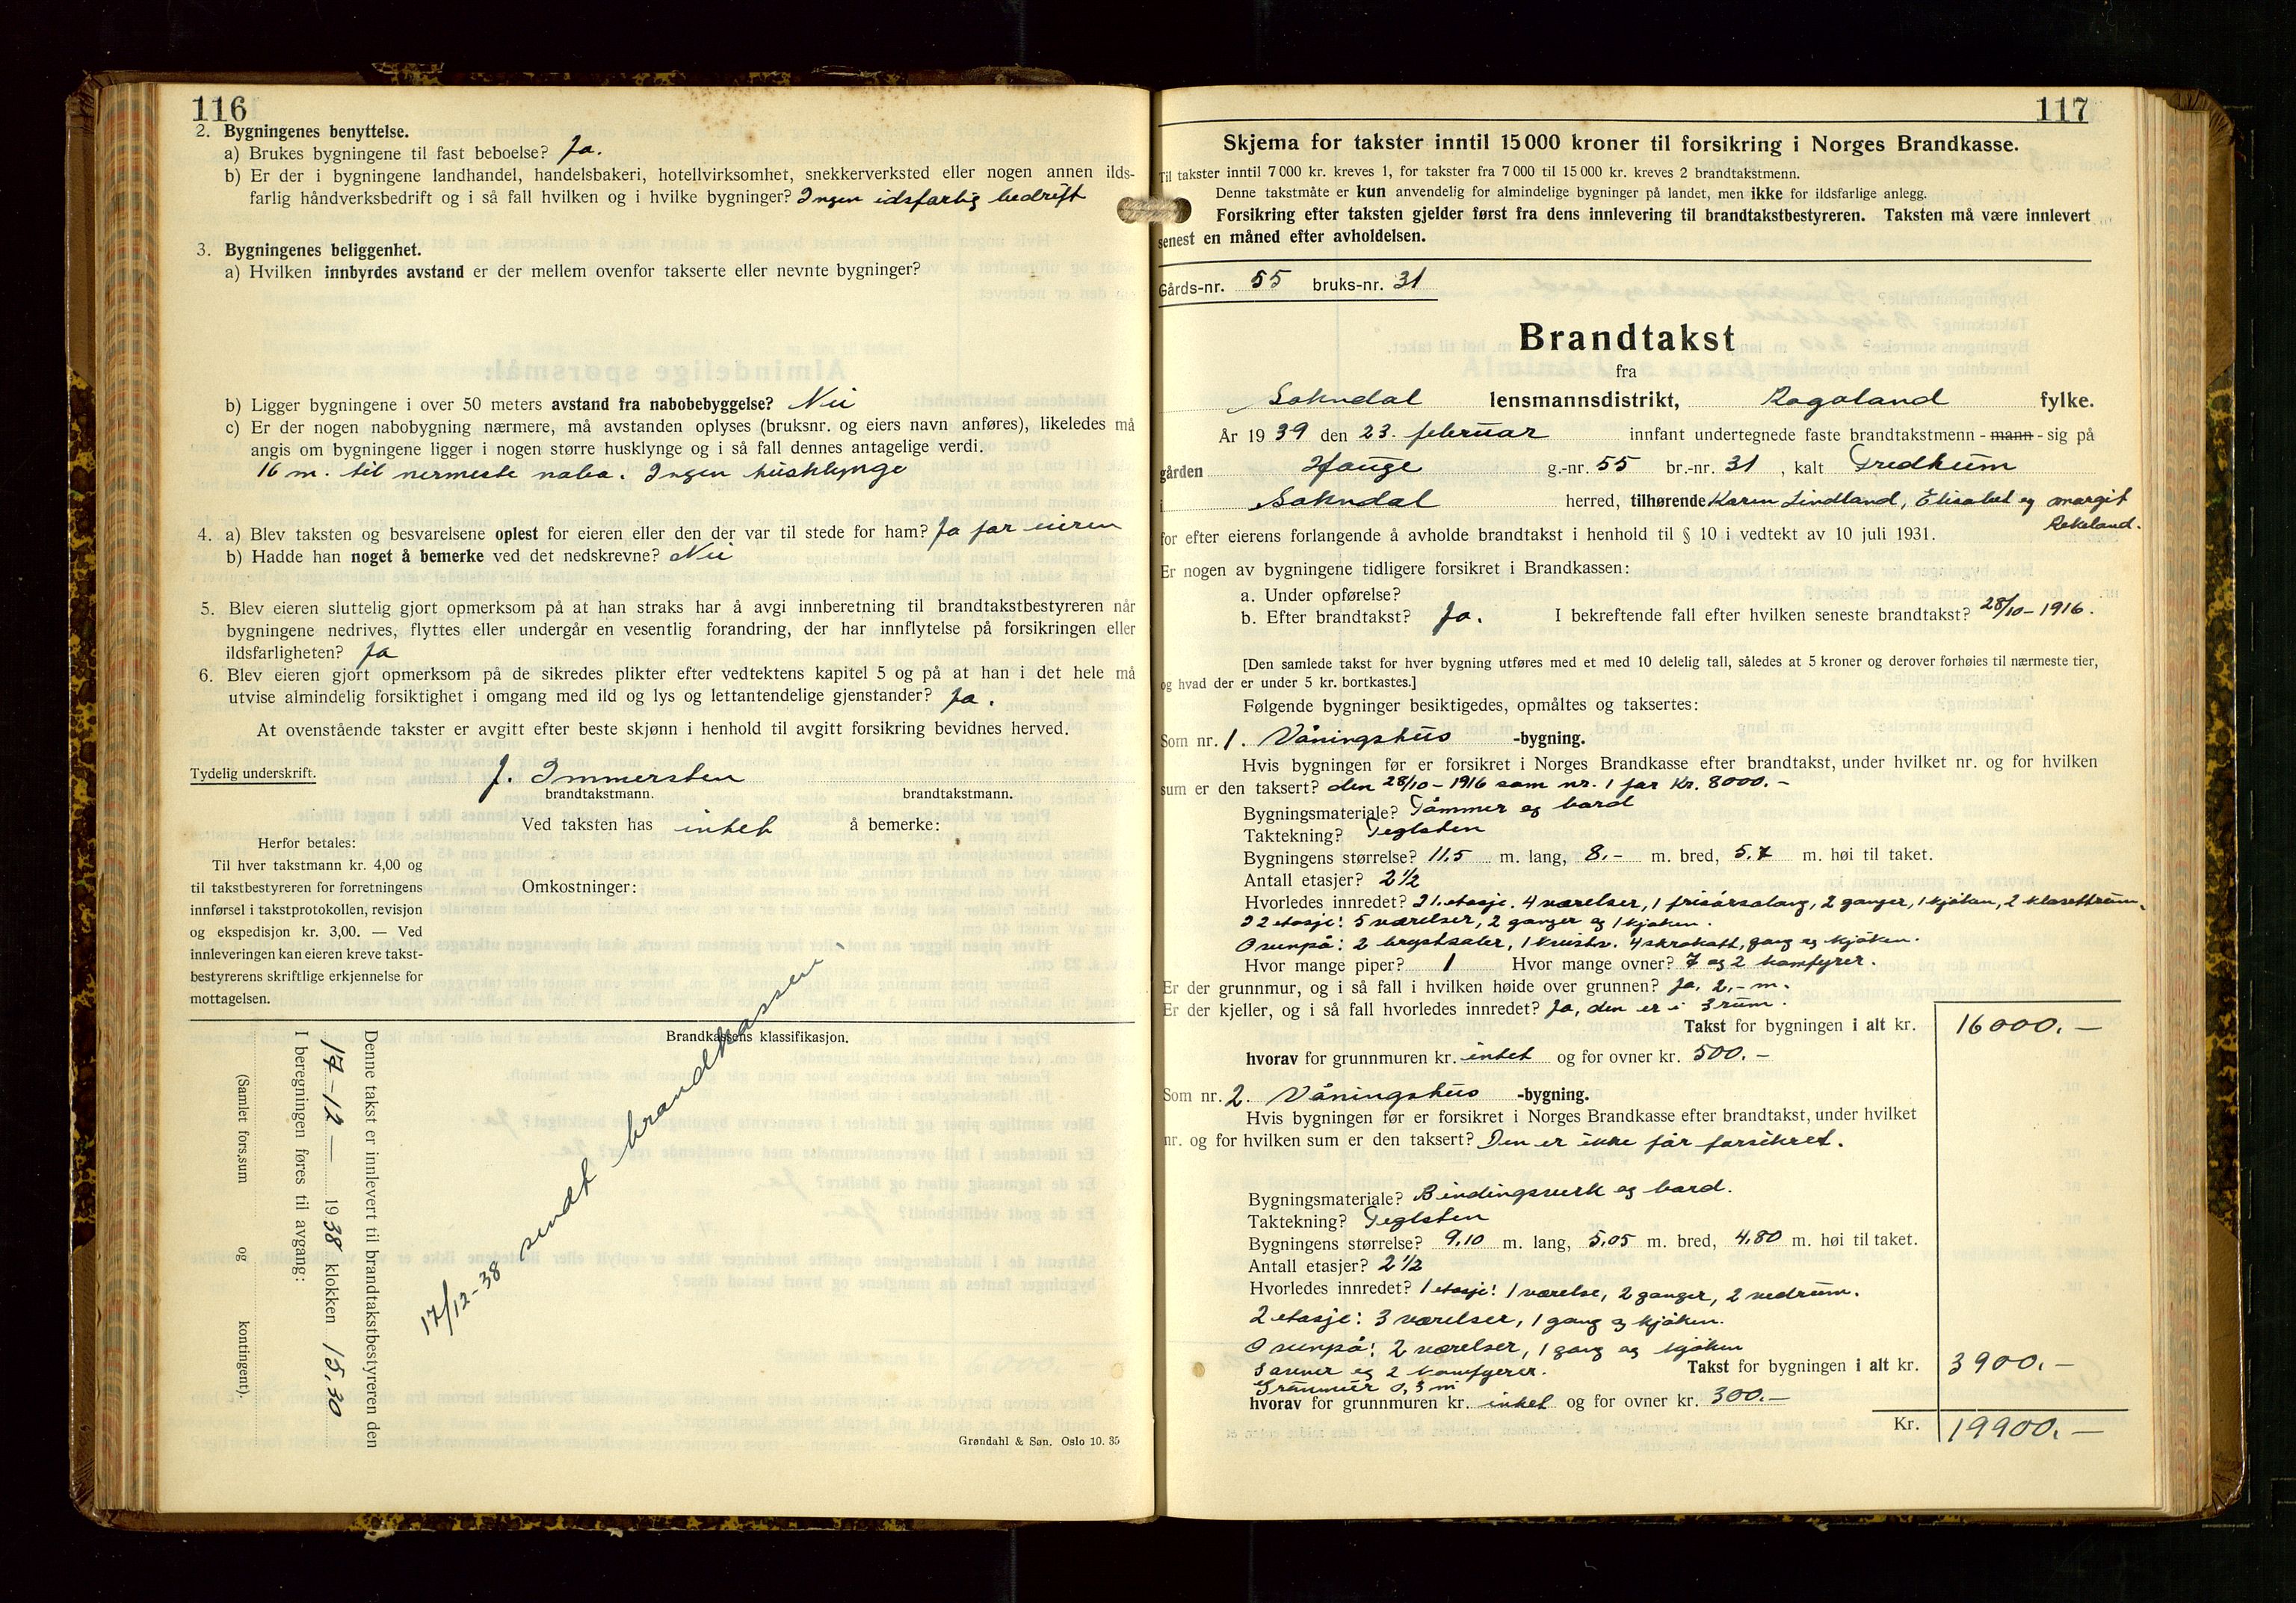 116
2. Bygningenes benyttelse.
a) Brukes bygningene til fast beboelse? Ja.
b) Er der i bygningene landhandel, handelsbakeri, hotellvirksomhet, snekkerverksted eller nogen annen ilds-
farlig håndverksbedrift og i så fall hvilken og i hvilke bygninger? Ingen idsfarlig bedrift
3. Bygningenes beliggenhet.
a) Hvilken innbyrdes avstand er der mellem ovenfor takserte eller nevnte bygninger?
b) Ligger bygningene i over 50 meters avstand fra nabobebyggelse? Nei
c) Er der nogen nabobygning nærmere, må avstanden oplyses (bruksnr. og eiers navn anføres), likeledes må
angis om bygningene ligger i nogen større husklynge og i så fall dennes antagelige verdi.
16 m. til nermeste nabo. Ingen husklynge
4. a) Blev taksten og besvarelsene oplest for eieren eller den der var til stede for ham? Ja for eieren
b) Hadde han noget å bemerke ved det nedskrevne? Nei
5. Blev eieren sluttelig gjort opmerksom på at han straks har å avgi innberetning til brandtakstbestyreren når
bygningene nedrives, flyttes eller undergår en vesentlig forandring, der har innflytelse på forsikringen eller
ildsfarligheten? Ja
6. Blev eieren gjort opmerksom på de sikredes plikter efter vedtektens kapitel 5 og på at han i det hele må
utvise almindelig forsiktighet i omgang med ild og lys og lettantendelige gjenstander? Ja.
At ovenstående takster er avgitt efter beste skjønn i henhold til avgitt forsikring bevidnes herved.
Tydelig underskrift. J. Immersten
brandtakstmann. brandtakstmann.
Ved taksten has intet å bemerke:
Herfor betales:
Til hver takstmann kr. 4,00 og
til takstbestyreren for forretningens
innførsel i takstprotokollen, revisjon
og ekspedisjon kr. 3,00. — Ved
innleveringen kan eieren kreve takst-
bestyrerens skriftlige erkjennelse for
mottagelsen.
Omkostninger:
Brandkassens klassifikasjon.
17/12-38 sendt brandkassen.
Denne takst er innlevert til brandtakstbestyreren den
17-12- 1938 klokken 15,30
I beregningen føres til avgang:
(Samlet fors.sum og kontingent).
Grøndahl & Søn. Oslo 10. 35
117
Skjema for takster inntil 15000 kroner til forsikring i Norges Brandkasse.
Til takster inntil 7 000 kr. kreves 1, for takster fra 7 000 til 15 000 kr. kreves 2 brandtakstmenn.
Denne takstmåte er kun anvendelig for almindelige bygninger på landet, men ikke for ildsfarlige anlegg.
Forsikring efter taksten gjelder først fra dens innlevering til brandtakstbestyreren. Taksten må være innlevert
senest en måned efter avholdelsen.
Gårds-nr. 55 bruks-nr. 31
Brandtakst
fra
Sokndal lensmannsdistrikt, Rogaland fylke.
År 1939 den 23. februar innfant undertegnede faste brandtakstmenn - mann - sig på
gården Hauge g.-nr. 55 br.-nr. 31, kalt Fredheim
i Sokndal herred, tilhørende Karen Lindland, Elisabet og Margit
Rekeland.
for efter eierens forlangende å avholde brandtakst i henhold til § 10 i vedtekt av 10 juli 1931.
Er nogen av bygningene tidligere forsikret i Brandkassen:
a. Under opførelse?
b. Efter brandtakst? Ja. I bekreftende fall efter hvilken seneste brandtakst? 28/10-1916.
[Den samlede takst for hver bygning utføres med et med 10 delelig tall, således at 5 kroner og derover forhøies til nærmeste tier,
og hvad der er under 5 kr. bortkastes.]
Følgende bygninger besiktigedes, opmåltes og taksertes:
Som nr. 1. Våningshus -bygning.
Hvis bygningen før er forsikret i Norges Brandkasse efter brandtakst, under hvilket nr. og for hvilken
sum er den taksert? den 28/10-1916 som nr. 1 for Kr. 8000.-
Bygningsmateriale? Tømmer og bord
Taktekning? Teglsten
Bygningens størrelse? 11.5 m. lang, 8.- m. bred, 5.7 m. høi til taket.
Antall etasjer? 2½
Hvorledes innredet? I 1. etasje. 4 værelser, 1 frisørsalong, 2 ganger, 1 kjøken, 2 klosettrum.
I 2 etasje: 5 værelser, 2 ganger og 1 kjøken.
Ovenpå: 2 brystsaler, 1 kvistv. 4 skrakott, gang og kjøken.
Hvor mange piper? 1 Hvor mange ovner? 7 og 2 komfyrer.
Er der grunnmur, og i så fall i hvilken høide over grunnen? Ja, 2,- m.
Er der kjeller, og i så fall hvorledes innredet? Ja, den er i 3 rum.
Takst for bygningen i alt kr. 16000.-
hvorav for grunnmuren kr. intet og for ovner kr. 500.-
Som nr. 2. Våningshus -bygning.
Hvis bygningen før er forsikret i Norges Brandkasse efter brandtakst, under hvilket
nr. og for hvilken sum er den taksert? Den er ikke før forsikret.
Bygningsmateriale? Bindingsverk og bord.
Taktekning? Teglsten
Bygningens størrelse? 9.10 m. lang, 5.05 m. bred, 4.80 m. høi til taket.
Antall etasjer? 2½
Hvorledes innredet? 1 etasje: 1 værelse, 2 ganger, 2 vedrum.
2 etasje: 3 værelser, 1 gang og kjøken.
Ovenpå: 2 værelser, 1 gang og kjøken
5 ovner og 2 komfyrer.
Takst for bygningen i alt kr. 3900.-
Grunmur 0,3 m
hvorav for grunnmuren kr. intet og for ovner kr. 300.-
Kr. 19900.-